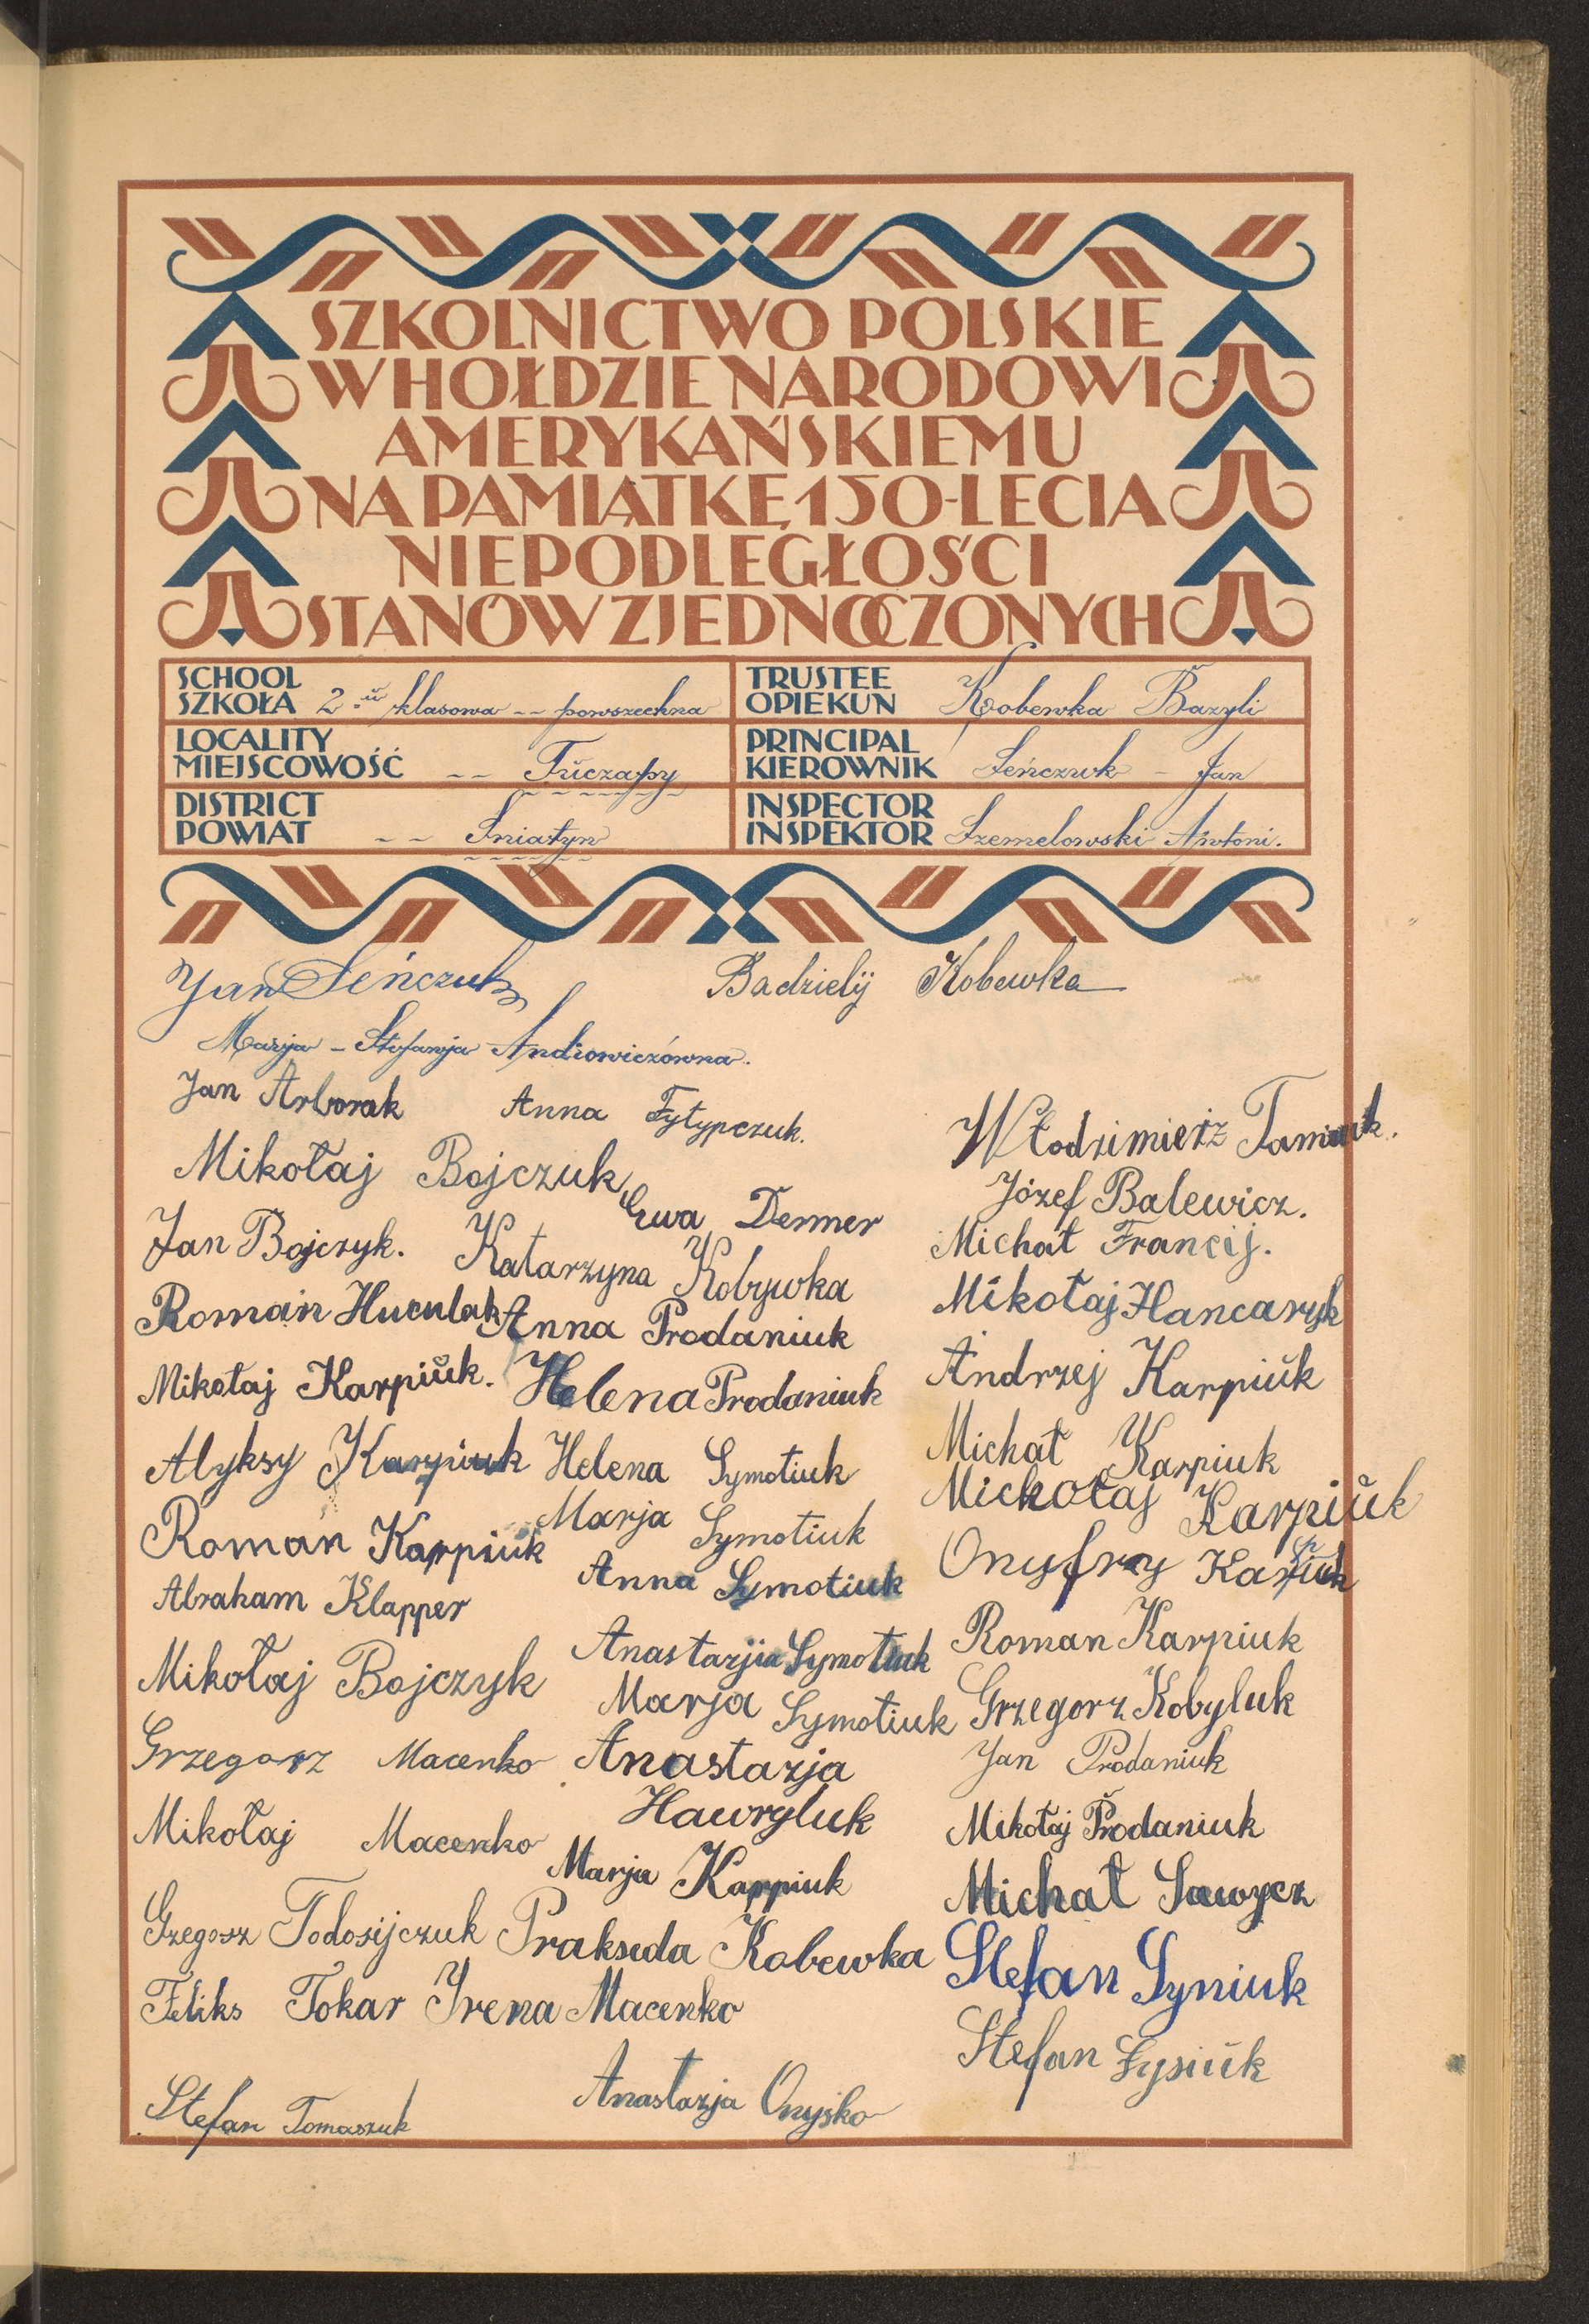 SZKOLNICTWO POLSKIE
W HOŁDZIE NARODOWI
AMERYKAŃSKIEMU
NA PAMIĄTKĘ 150-LECIA
NIEPODLEGŁOŚCI
STANÓW ZJEDNOCZONYCH
SCHOOL
SZKOŁA 2-u klasowa -- powszechna
LOCALITY
MIEJSCOWOŚĆ -- Tuczapy
DISTRICT
POWIAT -- Śniatyn
TRUSTEE
OPIEKUN Kobewka Bazyli
PRINCIPAL
KIEROWNIK Leńczuk - Jan
INSPECTOR
INSPEKTOR Szemelowski Antoni.
Jan Leńczuk
Badzielij Kobewka
Marja - Stefanja
Jan Arborak
Mikołaj Bojczuk
Jan Bojczyk.
Roman Huculak
Mikołaj Karpiuk.
Alyksy Karpiuk
Roman Karpiuk
Abraham Klapper
Mikołaj Bojczyk
Grzegorz Macenko
Mikołaj Macenko
Grzegosz Todosijczuk
Feliks Tokar
Stefan Tomaszuk
Anna Fytypczuk.
Ewa Dermer
Katarzyna Kobywka
Anna Prodaniuk
Helena Prodaniuk
Helena Symotiuk
Marja Symotiuk
Anna Symotiuk
Anastazjia Symotiuk
Marja Symotiuk
Anastazja
Hawryluk
Marja Karpiuk
Prakseda Kobewka
Irena Macenko
Anastazja Onyśko
Włodzimierz
Józef Balewicz.
Michał Francij.
Mikołaj Hancaryk
Andrzej Karpiuk
Michał Karpiuk
Mickołaj Karpiuk
Onyfry Karpiuk
Roman Karpiuk
Grzegorz Kobyluk
Jan Prodaniuk
Mikołaj Prodaniuk
Michał Sawycz
Stefan Syniuk
Stefan Łysiuk